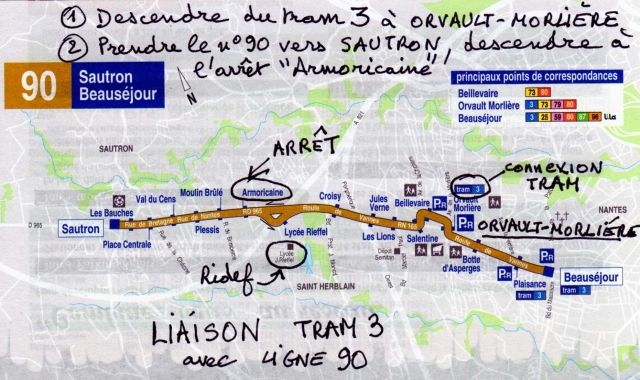 ① Descendre du tram 3 à ORVAULT-MORLIÈRE
② Prendre le n°90 vers SAUTRON, descendre à
l'arrêt "Armoricaine"
90
Sautron
Beauséjour
N
principaux points de correspondances
Beillevaire 73 80
Orvault Morlière 3 73 79 80
Beauséjour 3 25 59 80 87 96 Lila
SAUTRON
ARRÊT
A 821
connexion
TRAM
Val du Cens
Moulin Brûlé
Armoricaine
Croisy
Jules
Verne
Beillevaire
P+R
tram 3
Orvault
Morlière
P+R
NANTES
Les Bauches
D 965
Sautron
Rue de Bretagne
Rue de Nantes
RD 965
Route de Vannes
RN 165
ORVAULT-MORLIÈRE
Place Centrale
Plessis
Lycée Rieffel
Les Lions
Salentine
Route de Vannes
Lycée
J. Rieffel
Botte
d'Asperges
P+R
P+R
Beauséjour
tram 3
Plaisance
tram 3
Ridef
SAINT HERBLAIN
LIAISON TRAM 3
avec LIGNE 90